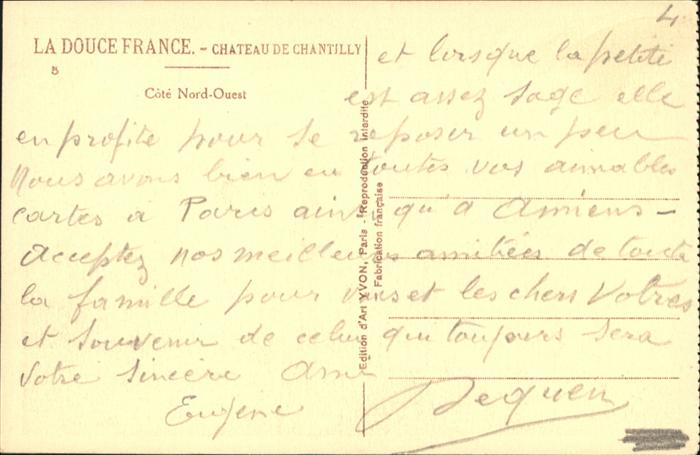 4
LA DOUCE FRANCE. - CHATEAU DE CHANTILLY
5
Côté Nord-Ouest
et lorsque la petite
est assez sage elle
en profite pour se reposer un peu
Nous avons bien eu toutes vos aimables
cartes à Paris ainsi qu'à Amiens -
Acceptez nos meilleurs amitiées de toute
la famille pour vous et les chers vôtres
et souvenir de celui qui toujours sera
votre sincère Ami
Eugène
Edition d'Art YVON, Paris - Reproduction interdite
Fabrication française